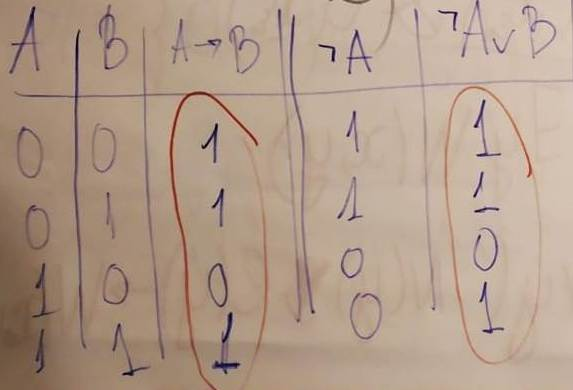 A B A→B ¬A ¬A∨B
0 0 1 1 1
0 1 1 1 1
1 0 0 0 0
1 1 1 0 1